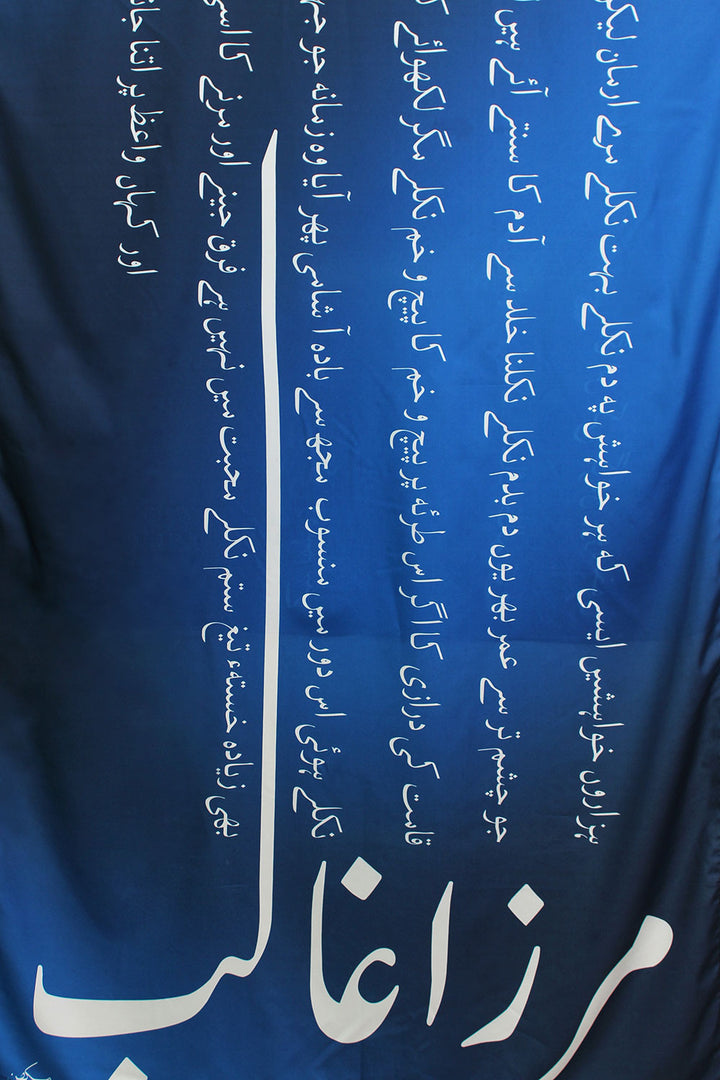 ہزاروں خواہشیں ایسی کہ ہر خواہش پہ دم نکلے بہت نکلے مرے ارمان
جو چشم تر سے عمر بھر یوں دم بدم نکلے نکلنا خلد سے آدم کا سنتے آئے ہیں
قامت کی درازی کا اگر اس طرئہ پر پیچ و خم کا پیچ و خم نکلے مگر لکھوائے
نکلے ہوئی اس دور میں منسوب مجھ سے بادہ آشامی پھر آیا وہ زمانہ جو
بھی زیادہ خستہء تیغ ستم نکلے محبت میں نہیں ہے فرق جینے اور مرنے کا اسی
اور کہاں واعظ پر اتنا
مرزا غالب